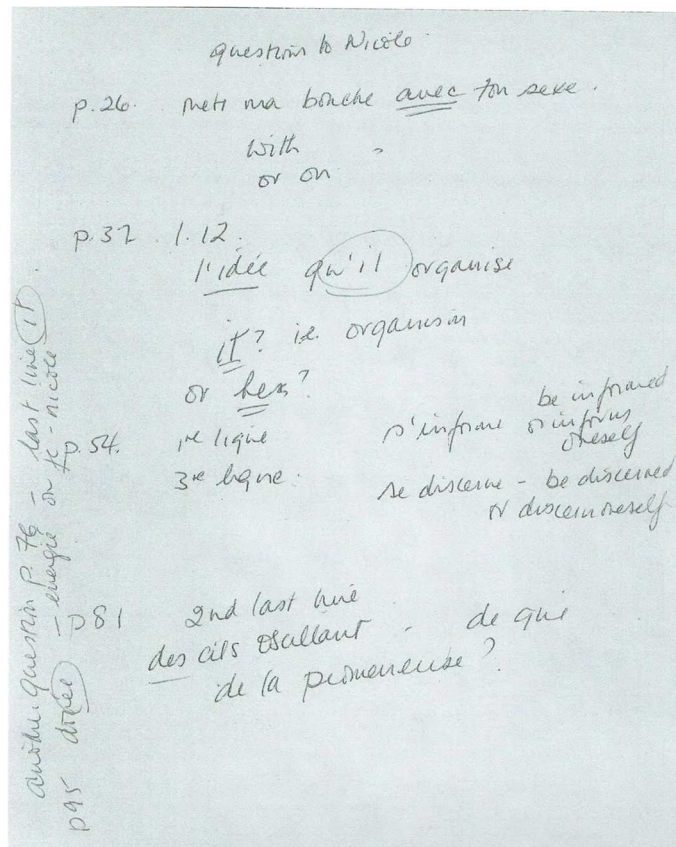 question to Nicole
p.26. mets ma bouche avec ton sexe.
with "
or on
p.37 l.12.
l'idée qu'il organise
it? i.e. organisin
or hers?
p.54. 1re ligne s'informe be informed
or informs
oneself
3re ligne. se discerne - be discerned
or discern oneself
p81 2nd last line
des cils oscillant - de qui
de la promeneuse?
another question p.76 - last line it.
p95 - énergie on - nicole